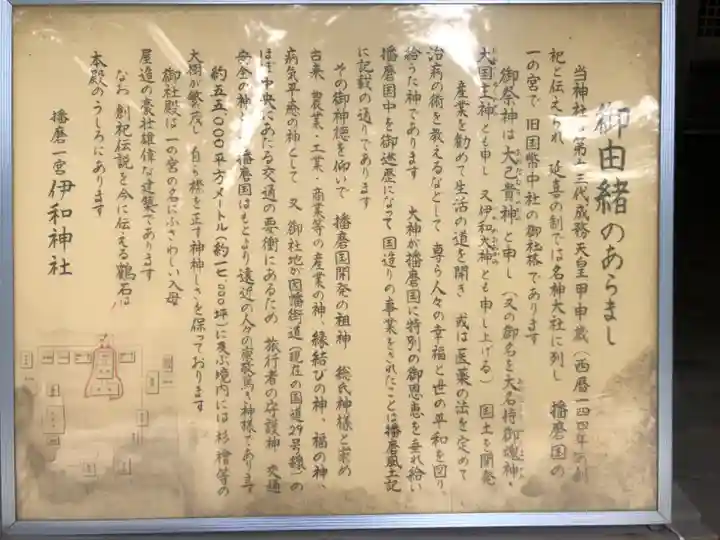 御由緒のあらまし
当神社 第十三代成務天皇甲申歳(西暦一四四年 創
祀と伝えられ 延喜の制では名神大社に列し 播磨国の
一の宮で 旧国幣中社の御社格であります
御祭神は 大己貴神と申し(又の御名を大名持御魂神・
大国主神とも申し 又伊和大神とも申し上げる) 国土を開発
産業を勧めて生活の道を開き 或は医薬の法を定めて
治病の術を教えるなどして 専ら人々の幸福と世の平和を図り、
給うた神であります 大神が播磨国に特別の御恩恵を垂れ給い
播磨国中を御巡歴になって 国造りの事業をされたことは播磨風土記
に記載の通りであります
その御神徳を仰いで 播磨国開発の祖神 総氏神様と崇め
古来 農業・工業・商業等の産業の神、縁結びの神、福の神、
病気平癒の神として 又 御社地が因幡街道(現在の国道29号線)の
ほぼ中央にあたる交通の要衝にあるため 旅行者の守護神 交通
安全の神と 播磨国はもとより遠近の人々の崇敬篤き神様であります
約五五、〇〇〇平方メートル(約一七、〇〇〇坪)に及ぶ境内には 杉 檜等の
大樹が繁茂し 自ら襟を正す神神しさを保っております
御社殿は一の宮の名にふさわしい入母
屋造の豪壮雄偉な建築であります
なお 創祀伝説を今に伝える鶴石は
本殿のうしろにあります
播磨一宮 伊和神社